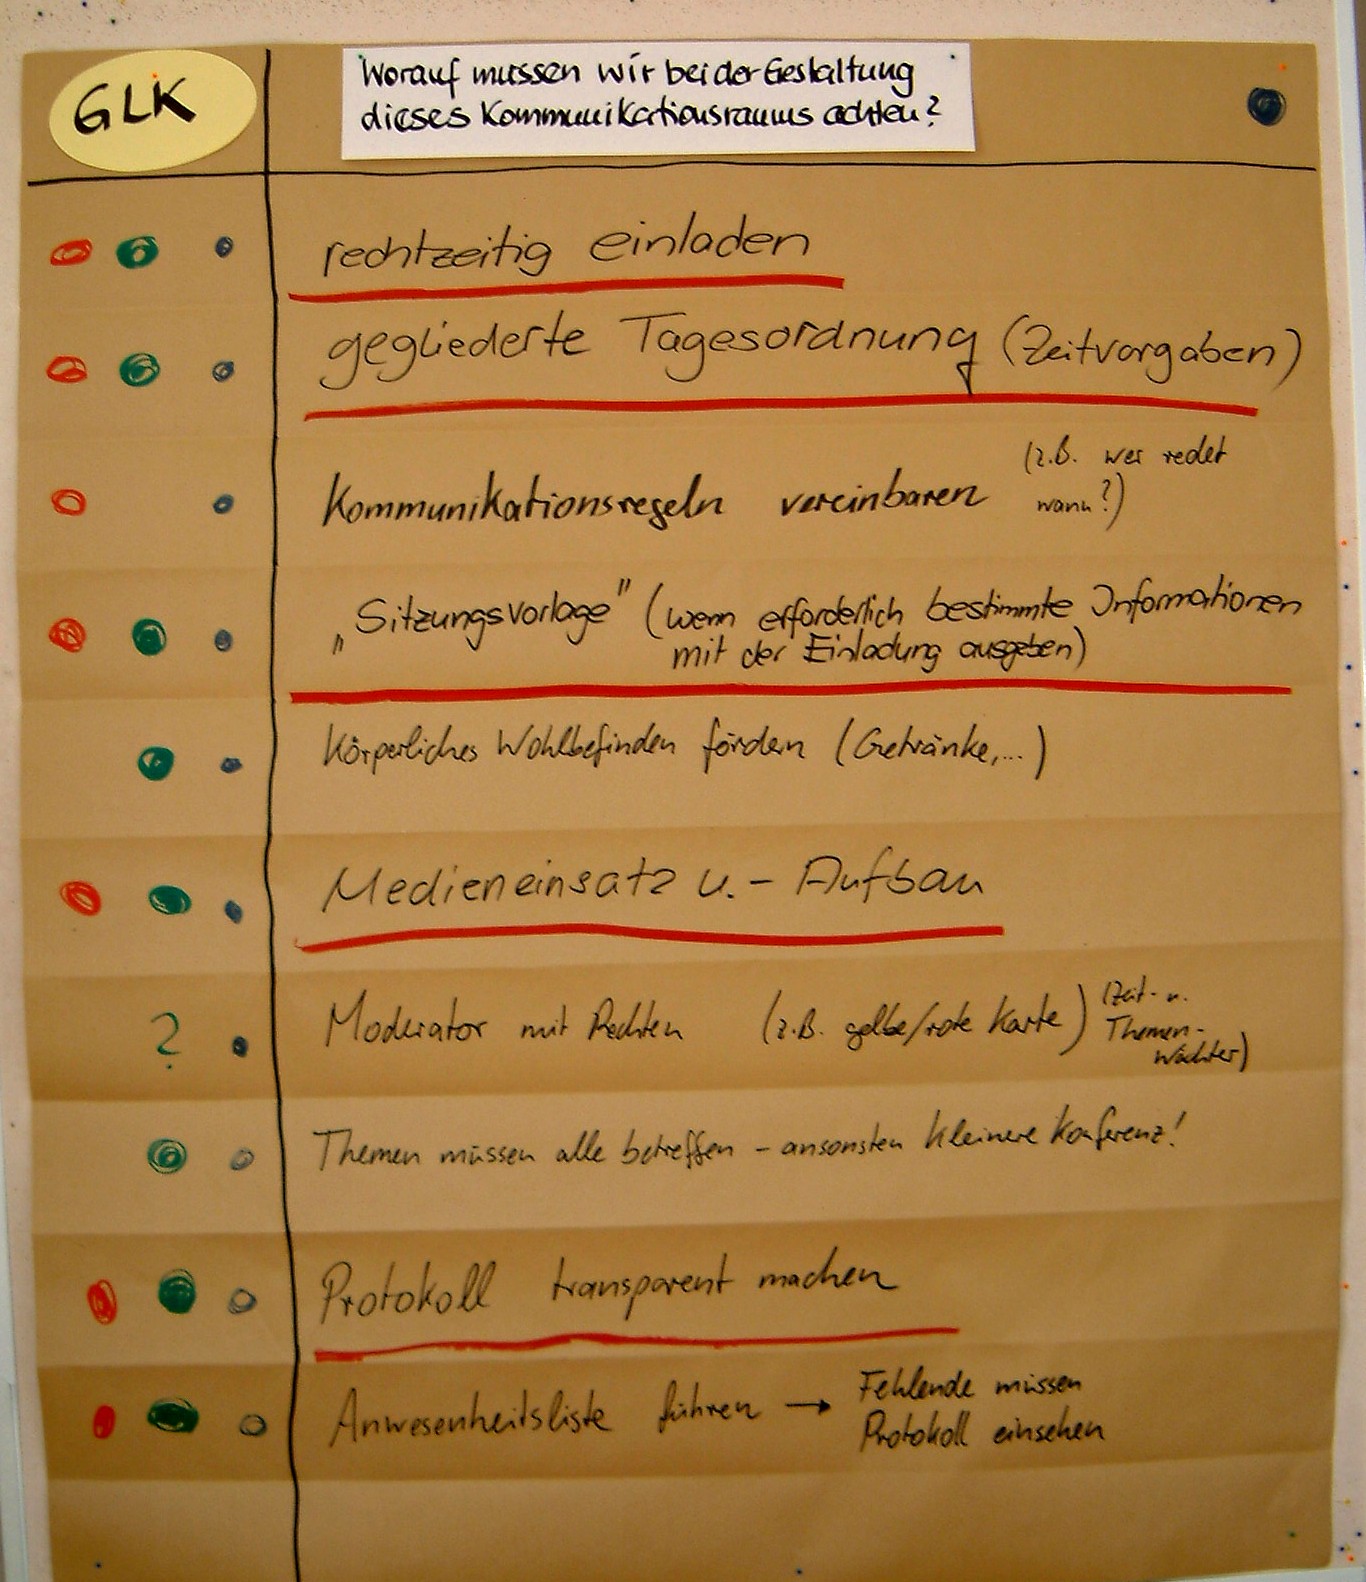 GLK
Worauf müssen wir bei der Gestaltung
dieses Kommunikationsraums achten?
rechtzeitig einladen
gegliederte Tagesordnung (Zeitvorgaben)
Kommunikationsregeln vereinbaren (z.B. wer redet
wann?)
„Sitzungsvorlage" (wenn erforderlich bestimmte Informationen
mit der Einladung ausgeben)
Körperliches Wohlbefinden fördern (Getränke,...)
Medieneinsatz u. - Aufbau
?
Moderator mit Rechten (z.B. gelbe/rote Karte) (Zeit- u.
Themen-
wächter)
Themen müssen alle betreffen - ansonsten kleinere Konferenz!
Protokoll transparent machen
Anwesenheitsliste führen → Fehlende müssen
Protokoll einsehen